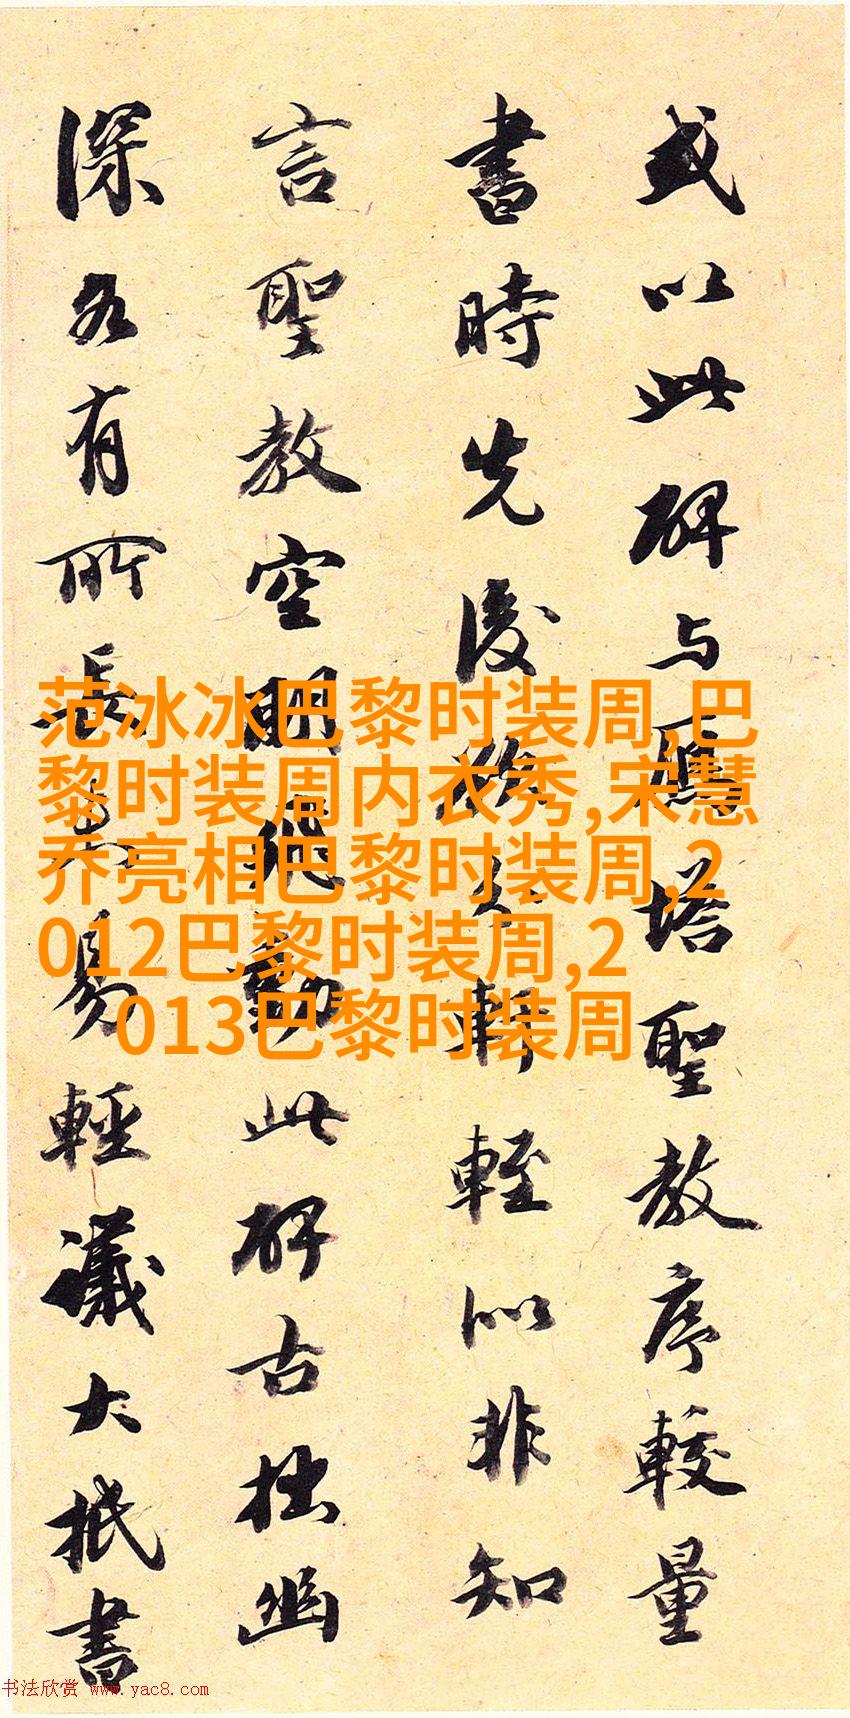 或以此碑与雁塔聖教序較量
書時先後軒輊似非知
言聖教空明飛動此碑古拙幽
深各有所長易輕議大抵書
范冰冰巴黎时装周,巴
黎时装周内衣秀,宋慧
乔亮相巴黎时装周,2
012巴黎时装周,2
013巴黎时装周
书法欣赏 www.yac8.com